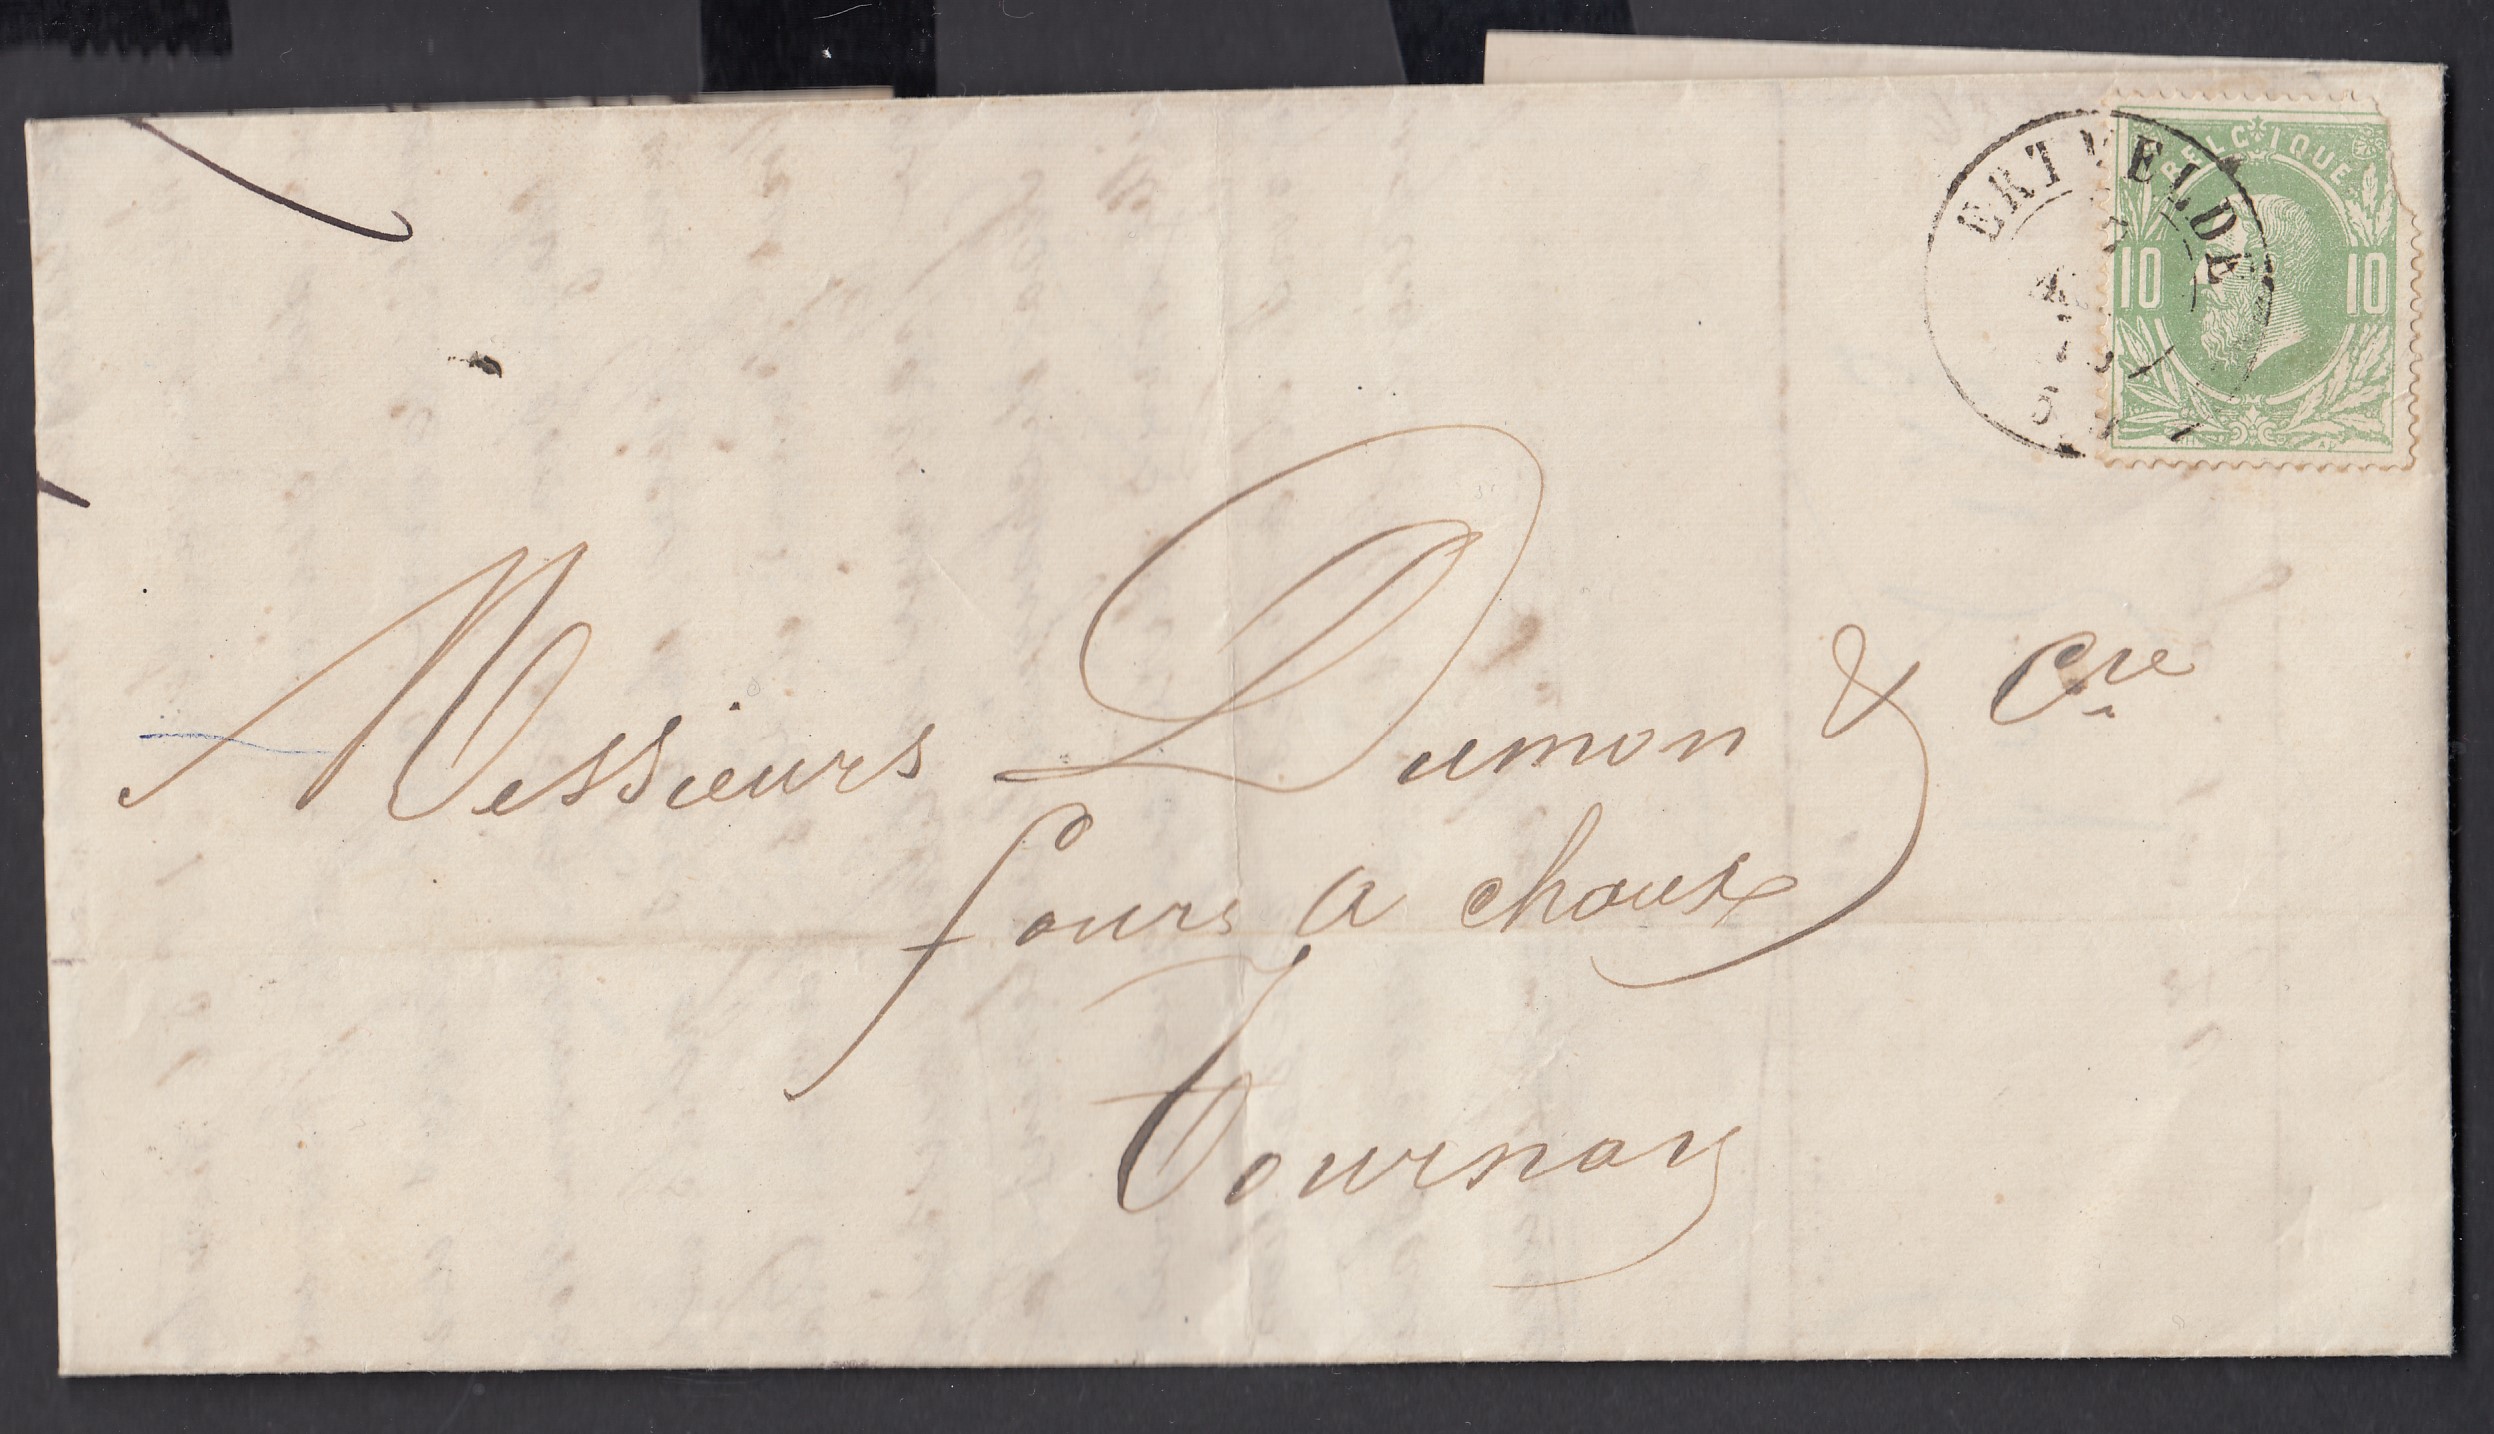 ERTVELDE
BELGIQUE
10 10
Messieurs Dumon & Cie
fours a chaux
Tournay